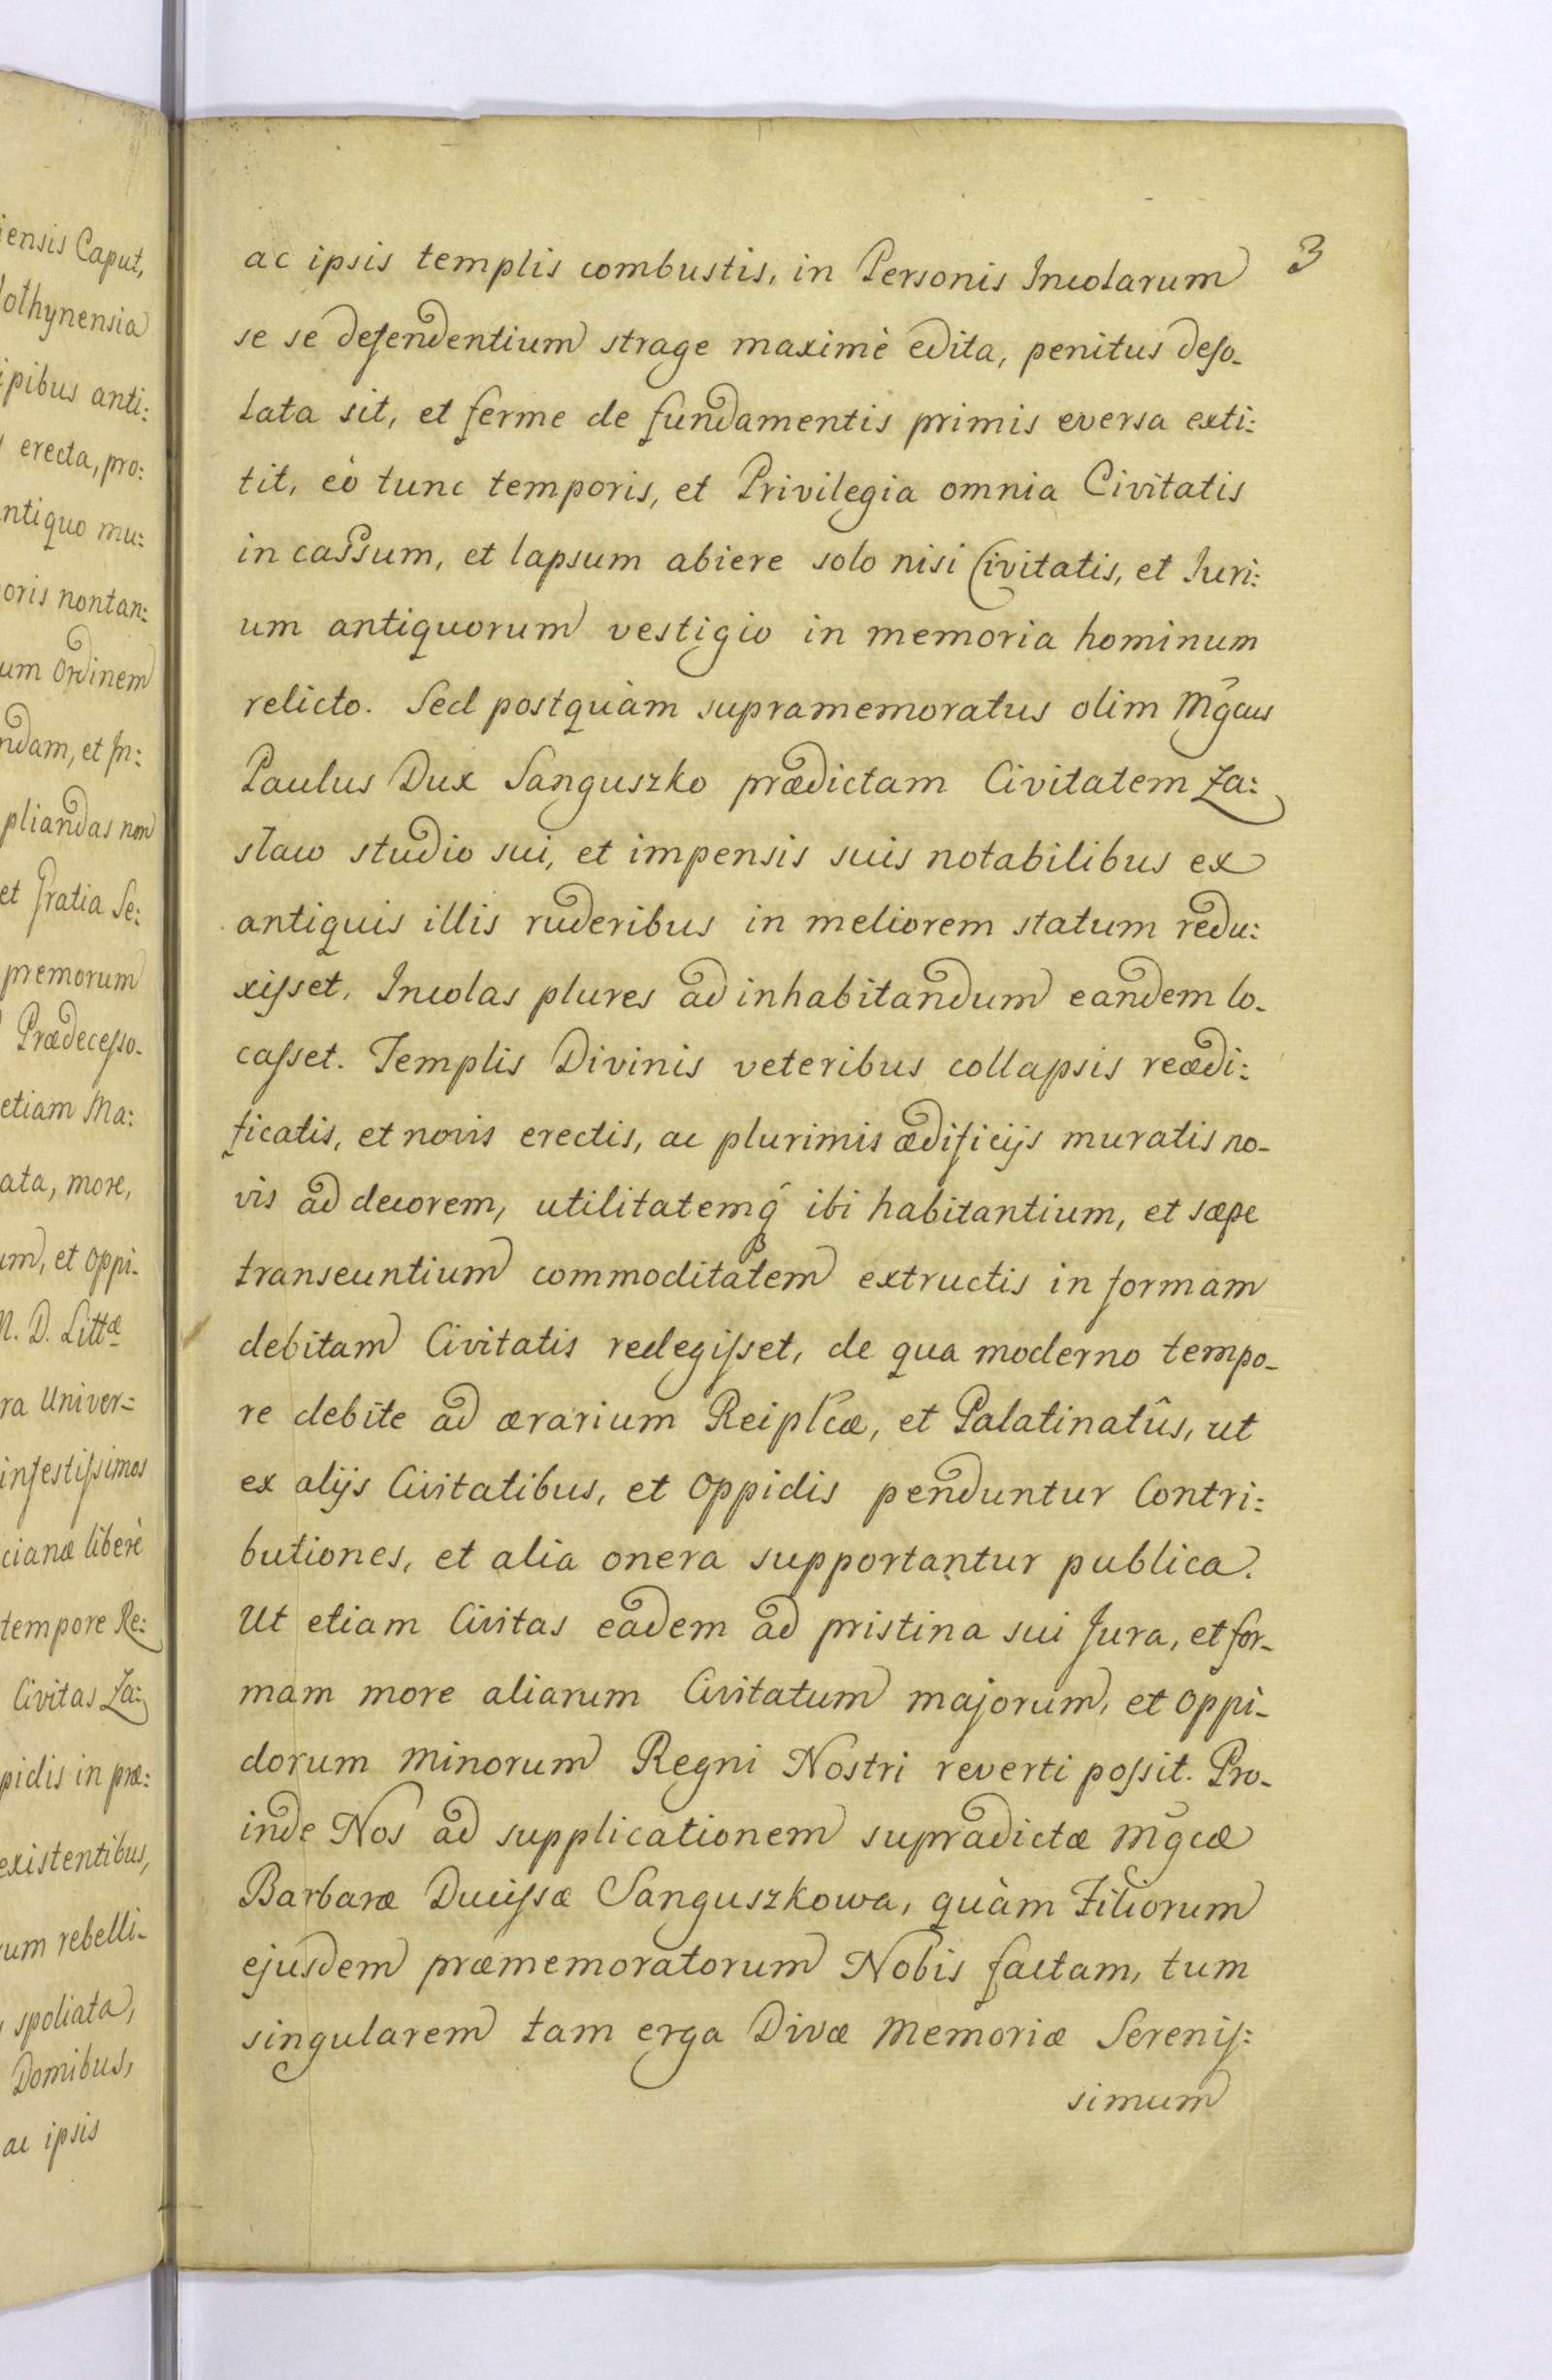 iensis Caput,
lothynensia
ipibus anti:
erecta, pro:
antiquo mu:
oris nontan:
um Ordinem
ndam, et In:
pliandas non
et Gratia Se:
premorum
Prædecesso-
etiam Ma:
ata, more,
um, et Oppi-
N. D. Littæ
ra Univer=
infestissimos
cianæ liberè
tempore Re:
Civitas Za:
pidis in præ:
existentibus,
rum rebelli-
spoliata,
Domibus,
ac ipsis
3
ac ipsis templis combustis, in Personis Incolarum
se se defendentium strage maximè edita, penitus deso-
lata sit, et ferme de fundamentis primis eversa exti:
tit, eò tunc temporis, et Privilegia omnia Civitatis
in cassum, et lapsum abiere solo nisi Civitatis, et Iuri:
um antiquorum vestigio in memoria hominum
relicto. Sed postquàm supramemoratus olim Mg̃cus
Paulus Dux Sanguszko prædictam Civitatem Za:
sław studio sui, et impensis suis notabilibus ex
antiquis illis ruderibus in meliorem statum redu:
xisset, Incolas plures ad inhabitandum eandem lo-
casset. Templis Divinis veteribus collapsis reædi:
ficatis, et novis erectis, ac plurimis ædificijs muratis no-
vis ad decorem, utilitatemq́ ibi habitantium, et sæpe
transeuntium commoditatem extructis in formam
debitam Civitatis redegisset, de qua moderno tempo-
re debite ad ærarium Reiplcæ, et Palatinatûs, ut
ex alijs Civitatibus, et Oppidis penduntur Contri:
butiones, et alia onera supportantur publica.
Ut etiam Civitas eadem ad pristina sui Jura, et for-
mam more aliarum Civitatum majorum, et Oppi-
dorum minorum Regni Nostri reverti possit. Pro-
inde Nos ad supplicationem supradictæ Mg̃cæ
Barbaræ Ducissæ Sanguszkowa, quàm Filiorum
ejusdem præmemoratorum Nobis factam, tum
singularem tam erga Divæ Memoriæ Serenis:
simum